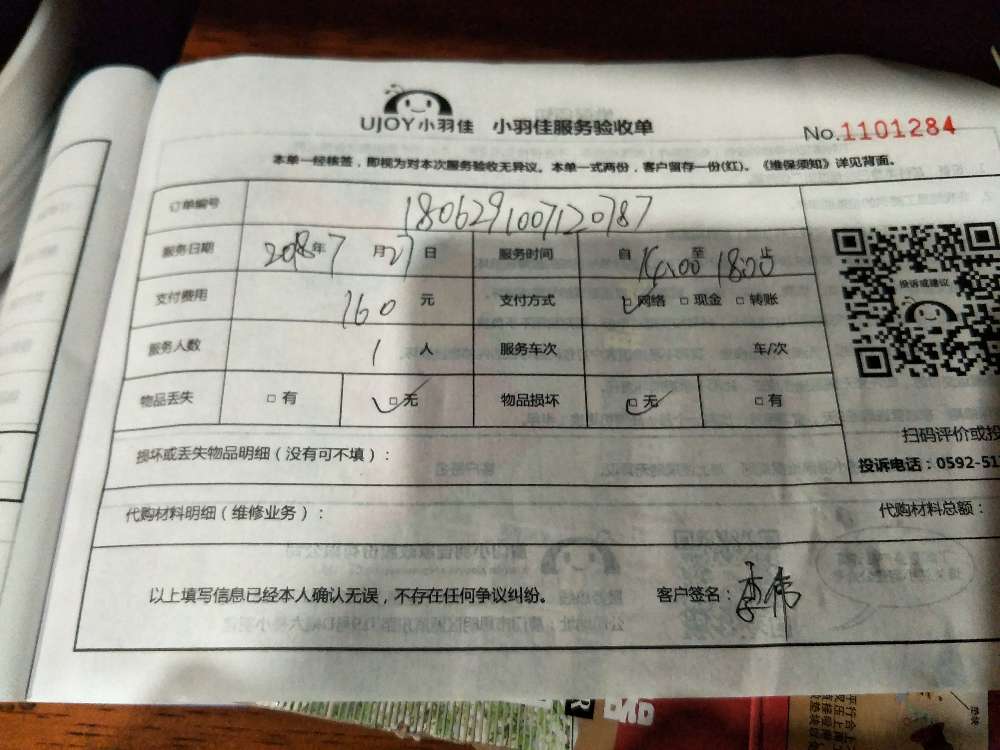 UJOY小羽佳 小羽佳服务验收单
No.1101284
本单一经核签，即视为对本次服务验收无异议。本单一式两份，客户留存一份(红)。《维保须知》详见背面。
订单编号 1806291007120787
服务日期 2018年7月27日 服务时间 自14:00至18:00止
支付费用 160元 支付方式 □网络 □现金 □转账
服务人数 1人 服务车次 车/次
物品丢失 □有 □无 物品损坏 □无 □有
投诉或建议
扫码评价或投
投诉电话：0592-51
损坏或丢失物品明细（没有可不填）：
代购材料明细（维修业务）： 代购材料总额：
以上填写信息已经本人确认无误，不存在任何争议纠纷。 客户签名：李伟
垫块